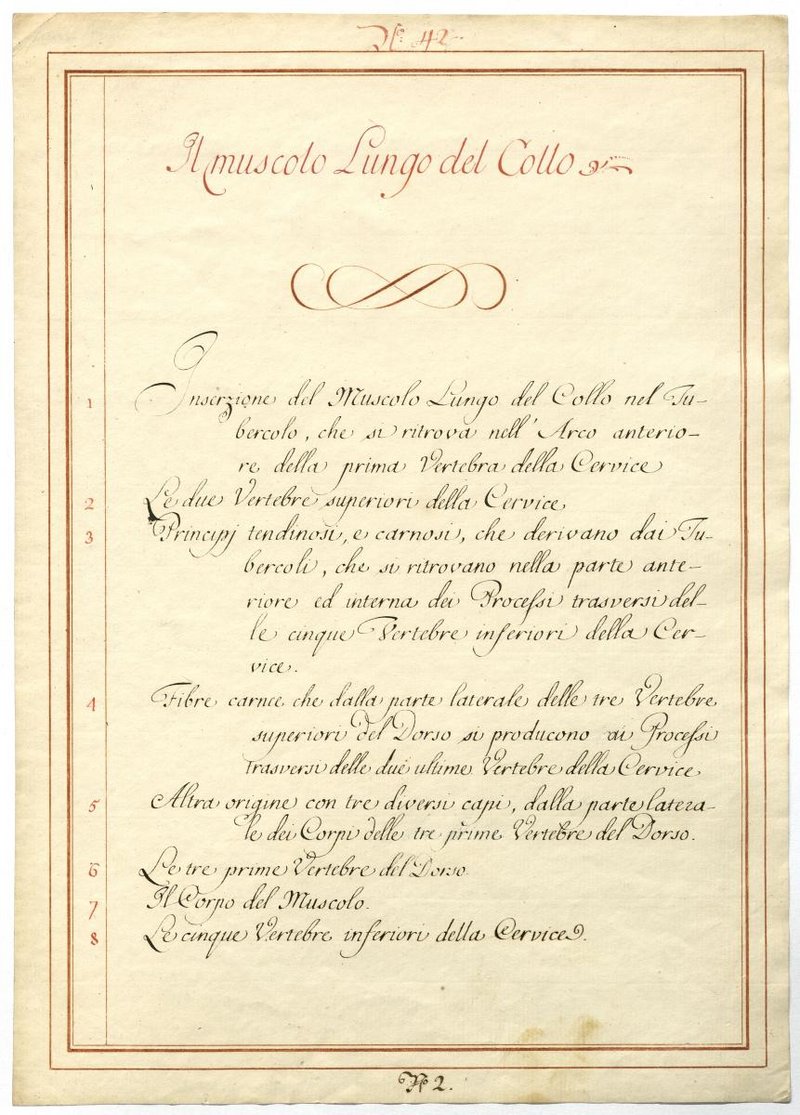 N.º 42.
Il muscolo Lungo del Collo
1 Inserzione del Muscolo Lungo del Collo nel Tu-
bercolo, che si ritrova nell' Arco anterio-
re della prima Vertebra della Cervice
2 Le due Vertebre superiori della Cervice
3 Principj tendinosi, e carnosi, che derivano dai Tu-
bercoli, che si ritrovano nella parte ante-
riore ed interna dei Processi trasversi del-
le cinque Vertebre inferiori della Cer-
vice.
4 Fibre carnee che dalla parte laterale delle tre Vertebre
superiori del Dorso si producono ai Processi
trasversi delle due ultime Vertebre della Cervice
5 Altra origine con tre diversi capi, dalla parte latera-
le dei Corpi delle tre prime Vertebre del Dorso.
6 Le tre prime Vertebre del Dorso
7 Il Corpo del Muscolo.
8 Le cinque Vertebre inferiori della Cervice.
Nº 2.